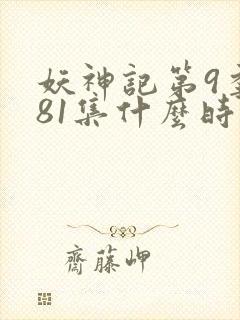 妖神記第9季
81集什麼時
齋藤岬